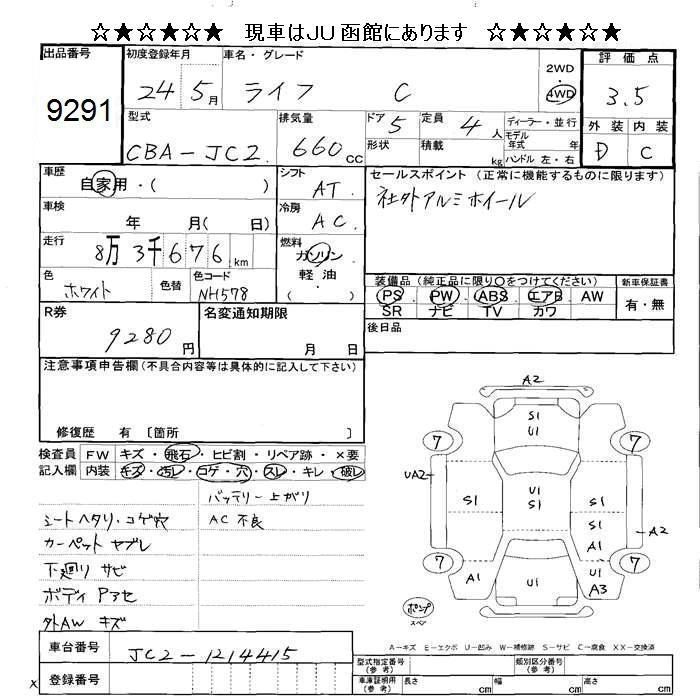 ☆★☆★☆★ 現車はJU函館にあります ☆★☆★☆★
出品番号 9291
初度登録年月 24 5月
車名・グレード ライフ C
2WD・4WD
評価点 3.5
外装 D 内装 C
型式 CBA-JC2
排気量 660cc
ドア 5
形状
定員 4人
積載 kg
ディーラー・並行
モデル年式 年
ハンドル 左・右
車歴 自家用・( )
シフト AT
セールスポイント (正常に機能するものに限ります)
社外アルミホイール
車検 年 月( 日)
冷房 AC
走行 8万3千676km
燃料 ガソリン・軽油・( )
色 ホワイト 色替
色コード NH578
装備品 (純正品に限り○をつけてください)
PS PW ABS エアB AW
SR ナビ TV カワ
新車保証書 有・無
R券 9280円
名変通知期限 月 日
後日品
注意事項申告欄(不具合内容等は具体的に記入して下さい)
修復歴 有 〔箇所 〕
検査員記入欄
FW キズ・飛石・ヒビ割・リペア跡・×要
内装 キズ・汚レ・コゲ・穴・スレ・キレ・破レ
バッテリー上がり
シートヘタリ・コゲ穴 AC不良
カーペット ヤブレ
下廻り サビ
ボディ アセ
外AW キズ
A2
S1
U1
7 7
UA2 S1 U1 S1 S1 S1 A1 A2
7 7
A1 U1 U1 A3
ポンプ
スペア
A-キズ E-エクボ U-凹み W-補修跡 S-サビ C-腐食 XX-交換済
車台番号 JC2-1214415
登録番号
x
型式指定番号(参考)
類別区分番号(参考)
車庫証明用(参考) 長さ cm 幅 cm 高さ cm